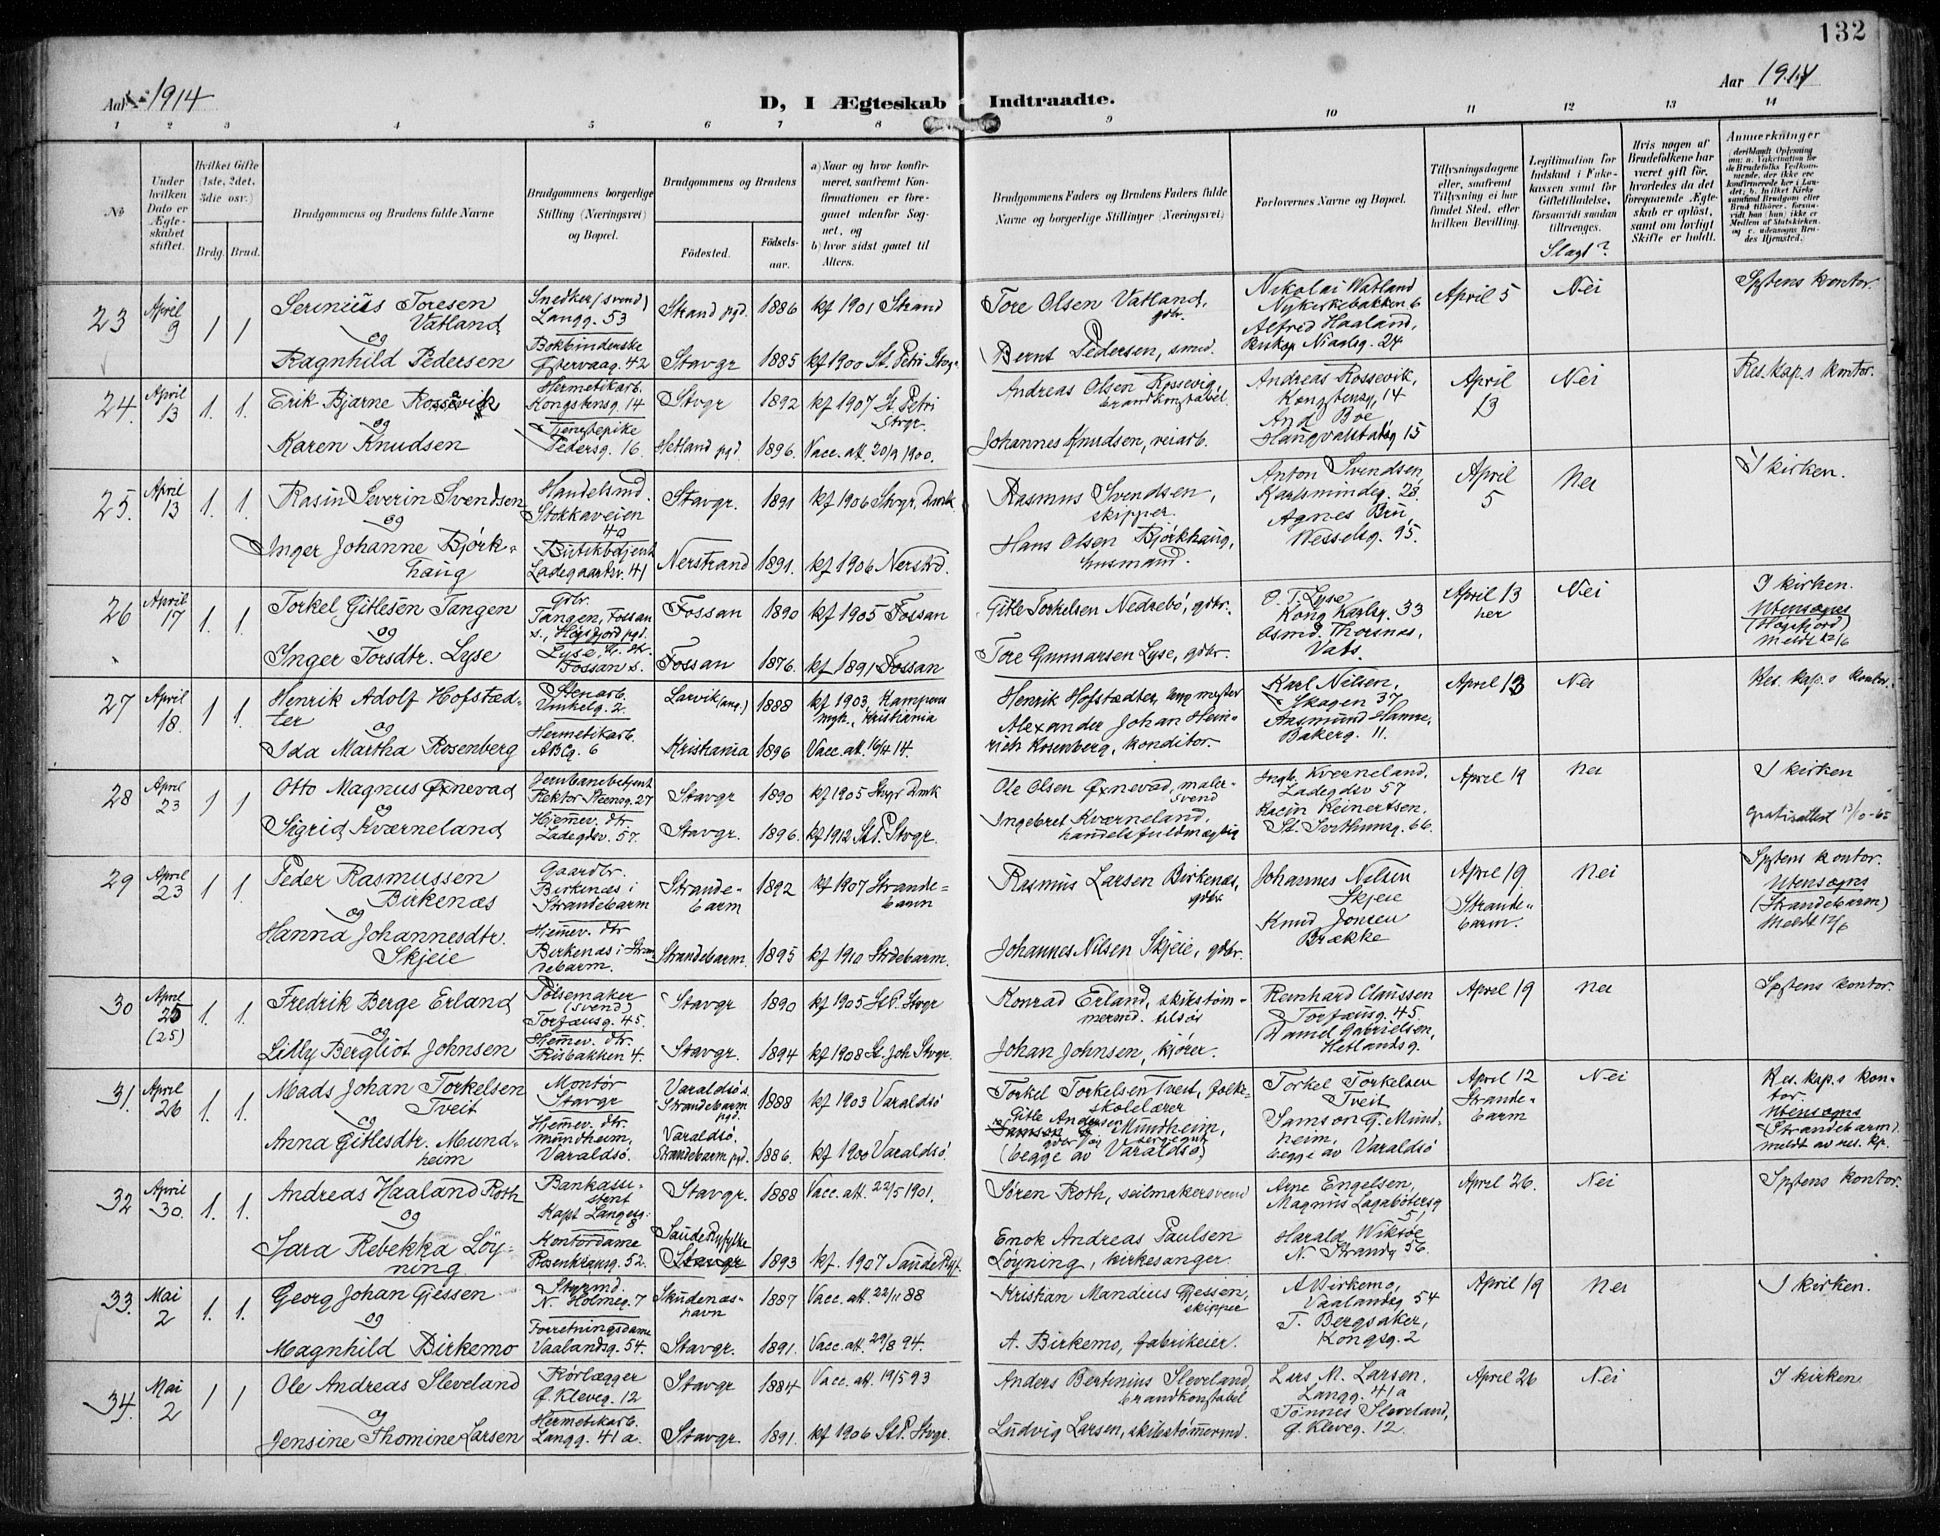 132
Aar 1914
D, I Ægteskab Indtraadte.
Aar 1914
1 2 3 4 5 6 7 8 9 10 11 12 13 14
No
Under hvilken Dato er Ægteskabet stiftet.
Hvilket Gifte (1ste, 2det, 3die osv.)
Brdg. Brud.
Brudgommens og Brudens fulde Navne
Brudgommens borgerlige Stilling (Næringsvei) og Bopæl.
Brudgommens og Brudens
Fødested.
Fødselsaar.
a) Naar og hvor konfirmeret, saafremt Konfirmationen er foregaaet udenfor Sognet, og
b) hvor sidst gaaet til Alters.
Brudgommens Faders og Brudens Faders fulde Navne og borgerlige Stillinger (Næringsvei)
Forlovernes Navne og Bopæl.
Tillysningsdagene eller, saafremt Tillysning ei har fundet Sted, efter hvilken Bevilling.
Legitimation for Indskud i Enkekassen samt for Giftetilladelse, forsaavidt saadan tiltrænges.
Slagt?
Hvis nogen af Brudefolkene har været gift før, hvorledes da det foregaaende Ægteskab er opløst, samt om lovligt Skifte er holdt.
Anmerkninger
23 April 9 1 1
Serinius Toresen Vatland
og
Ragnhild Pedersen
Snedker (svend) Langg. 53
Bokbinderske Østervaag. 42
Strand pgd. 1886 kf 1901 Strand
Stavgr 1885 kf 1900 St. Petri Stvgr.
Tore Olsen Vatland, gdbr.
Bernt Pedersen, smed.
Nikolai Vatland Nykirkebakken 6
Alfred Haaland, Niaalsg. 24
April 5 Nei
Spstens kontor.
24. April 13 1. 1.
Erik Bjarne Rossevik
og
Karen Knudsen
Hermetikarb. Kongstensg. 14
Tjenestepike Pedersg. 16.
Stvgr 1892 kf 1907 St. Petri Stvgr.
Hetland pgd. 1896. Vacc. att. 20/9 1900.
Andreas Olsen Rossevig, brandkonstabel
Johannes Knudsen, veiarb.
Andreas Rossevik, Kongstensg. 14
And. Boe Haugvaldstadsg 15
April 13 Nei
Res. kap.s kontor.
25. April 13 1. 1.
Rasin Severin Svendsen
og
Inger Johanne Bjørkhaug
Handelsmd. Stokkaveien 40
Butikbetjent Ladegaardsv. 41
Stavgr. 1891 kf 1906 Stvgr. Dmk
Nerstrand 1891. kf 1906 Nerstrd.
Rasmus Svendsen, skipper.
Hans Olsen Bjørkhaug, husmand.
Anton Svendsen, Karlsmindeg. 28.
Agnes Bru Wesselsg. 95.
April 5 Nei
I kirken.
26 April 17 1. 1.
Torkel Gitlesen Tangen
og
Inger Torsdtr. Lyse
Gdbr. Tangen, Fossan s., Høgsfjord pgd.
Lyse, g. dtr. Fossan s.
Fossan 1890 kf 1905 Fossan
Fossan 1876. kf 1891 Fossan
Gitle Torkelsen Nedrebø, gdbr.
Tore Gunnarsen Lyse, gdbr.
O. T. Lyse Kong Karlsg. 33
Osmd. Thorsnes, Vats.
April 13 her Nei
I kirken.
Utensogns (Høgsfjord) Meldt 12/6
27 April 18. 1 1.
Henrik Adolf Hofstædter
og
Ida Martha Rosenberg
Stenarb. Vinkelg. 2
Hermetikarb. ABCg. 6
Larvik (ang.) 1888 kf 1903, Kampens mgh., Kristiania
Kristiania 1896 Vacc. att. 16/4 14.
Henrik Hofstædter, mester
Alexander Johan Heinrich Rosenberg, konditor.
Karl Nilsen, Skagen 37
Aasmund Hanne, Bakerg. 11.
April 13 Nei
Res. kap.s kontor.
28 April 23 1 1
Otto Magnus Øxnevad
og
Sigrid Kværneland
Jernbanebetjent Rektor Steensg. 27
Hjemmev. dtr. Ladegdsv. 57.
Stavgr 1890 kf 1905 Stvgr Dmk
Stavgr. 1896. kf 1912 St. P. Stvgr.
Ole Olsen Øxnevad, malersvend
Ingebret Kværneland, handelsfuldmægtig
Ingb. Kverneland, Ladegdsv 57
Racin Reinertsen, St. Svithunsg. 66.
April 19 Nei
I kirken
Gratisattest 13/10-65
29 April 23 1 1.
Peder Rasmussen Birkenæs
og
Hanna Johannesdtr. Skjeie
Gaardbr. Birkenæs i Strandebarm
Hjemmev. dtr Birkenæs i Strandebarm.
Strandebarm 1892 kf 1907 Strandebarm
Strandebarm. 1895 kf 1910 Strdebarm.
Rasmus Larsen Birkenæs, gdbr.
Johannes Nilsen Skjeie, gdbr.
Johannes Nilsen Skjeie
Knud Jonsen Brække
April 19 Strandebarm. Nei
Spstens kontor.
Utensogns (Strandebarm) Meldt 12/6
30 April 25 (25) 1. 1.
Fredrik Berge Erland
og
Lilly Bergliot Johnsen
Pølsemaker (svend) Torfæusg. 45.
Hjemmev. dtr. Risbakken 4.
Stavgr 1890 kf 1905 St. P. Stvgr
Stavgr. 1894 kf 1908 St. Joh Stvgr.
Konrad Erland, skibstømmermd. tilsøs
Johan Johnsen, kjører.
Reinhard Claussen Torfæusg. 45
Daniel Gabrielsen, Hetlandsg.
April 19 Nei
Spstens kontor.
31. April 26 1. 1.
Mads Johan Torkelsen Tveit
og
Anna Gitlesdtr. Mundheim
Montør Stavgr
Hjemmev. dtr. Mundheim, Varaldsø.
Varaldsø s. Strandebarm pgd. 1888 kf 1903 Varaldsø
Varaldsø. Strandebarm pgd. 1886. kf 1900 Varaldsø.
Torkel Torkelsen Tveit, folkeskolelærer
Gitle Andersen Mundheim, gdbr. og sergeant
(begge av Varaldsø)
Torkel Torkelsen Tveit
Samson G. Mundheim, begge av Varaldsø
April 12 Strandebarm Nei
Res. kap.s kontor.
Utensogns (Strandebarm) meldt av res. kp.
32 April 30. 1. 1.
Andreas Haaland Roth
og
Sara Rebekka Løyning
Bankassistent Kapt. Langesg. 8
Kontordame Rosenkransg. 52.
Stavgr. 1888 Vacc. att. 22/5 1901.
Saude Ryfylke Stavgr 1893 kf. 1907 Saude Ryf.
Søren Roth, seilmakersvend
Enok Andreas Paulsen Løyning, kirkesanger.
Arne Engelsen, Magnus Lagabøtersg 5
Harald Wiksøe N. Strandg 56.
April 26. Nei
Spstens kontor.
33. Mai 2 1. 1.
Georg Johan Gjessen
og
Magnhild Birkemo
Styrmd. N. Holmeg. 7
Forretningsdame Vaalandsg. 54.
Skudenæshavn 1887 Vacc. att. 22/11 88
Stavgr. 1891. Vacc. att. 29/8 94.
Kristian Mandius Gjessen, skipper
A. Birkemo, fabrikeier.
A Birkemo, Vaalandsg 54
T. Bergsaker, Kongsg. 2
April 19 Nei
I kirken.
34. Mai 2 1 1
Ole Andreas Sleveland
og
Jensine Thomine Larsen
Rørlægger Ø. Kleveg. 12
Hermetikarb. Langg. 41 a.
Stavgr 1884 Vacc. att. 19/5 93
Stavgr 1891. kf 1906 St. P. Stvgr.
Anders Bertinius Sleveland, brandkonstabel
Ludvig Larsen, skibstømmermd.
Lars M. Larsen, Langg. 41 a
Tønnes Sleveland, Ø. Kleveg. 12.
April 26 Nei
I kirken